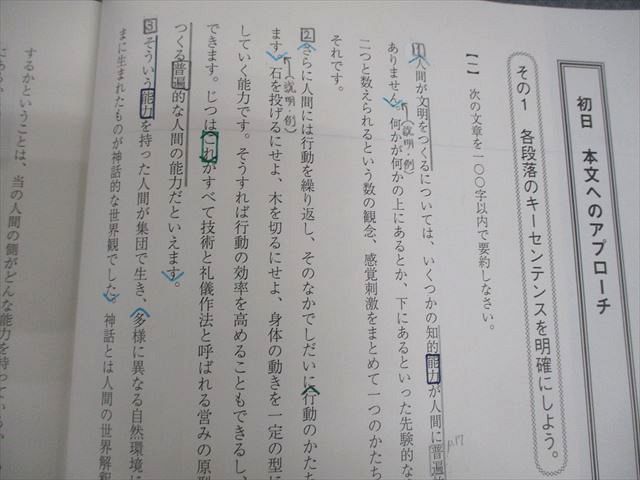 初日 本文へのアプローチ
その1 各段落のキーセンテンスを明確にしよう。
【一】 次の文章を一〇〇字以内で要約しなさい。
1 人間が文明をつくるについては、いくつかの知的能力が人間に普遍的
p.17
ありません。何かが何かの上にあるとか、下にあるといった先験的な
(説明・例)
二つと数えられるという数の観念、感覚刺激をまとめて一つのかたち
それです。
2 さらに人間には行動を繰り返し、そのなかでしだいに行動のかたち
(説明・例)
ます。石を投げるにせよ、木を切るにせよ、身体の動きを一定の型に
していく能力です。そうすれば行動の効率を高めることもできるし、
できます。じつはこれがすべて技術と礼儀作法と呼ばれる営みの原型
つくる普遍的な人間の能力だといえます。
3 そういう能力を持った人間が集団で生き、多様に異なる自然環境に
まに生まれたものが神話的な世界観でした。神話とは人間の世界解釈
するかということは、当の人間の側がどんな能力を持っている